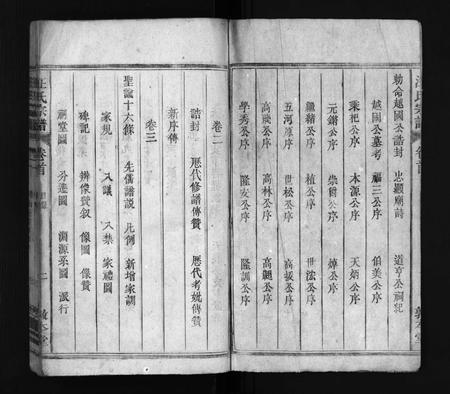 汪氏宗譜 卷首
勅命越國公誥封 忠顯廟詩 道亨公祠記
越國公墓考 福三公序 伯美公序
乘祀公序 本源公序 天炳公序
元鏘公序 崇將公序 焯公序
繼緒公序 植公序 世法公序
五河源序 世松公序 高拔公序
高飛公序 高林公序 高颺公序
學秀公序 隆安公序 隆訓公序
卷二
誥封 歷代修譜傳贊 歷代考妣傳贊
新序傳
卷三
聖諭十六條 先儒譜說 凡例 新增家訓
家規 入議 入禁 家禮圖
碑記 辨像贊叙 像圖 像贊
祠堂圖 分遷圖 淵源系圖 派行
汪氏宗譜 卷首 目錄 二 敦本堂